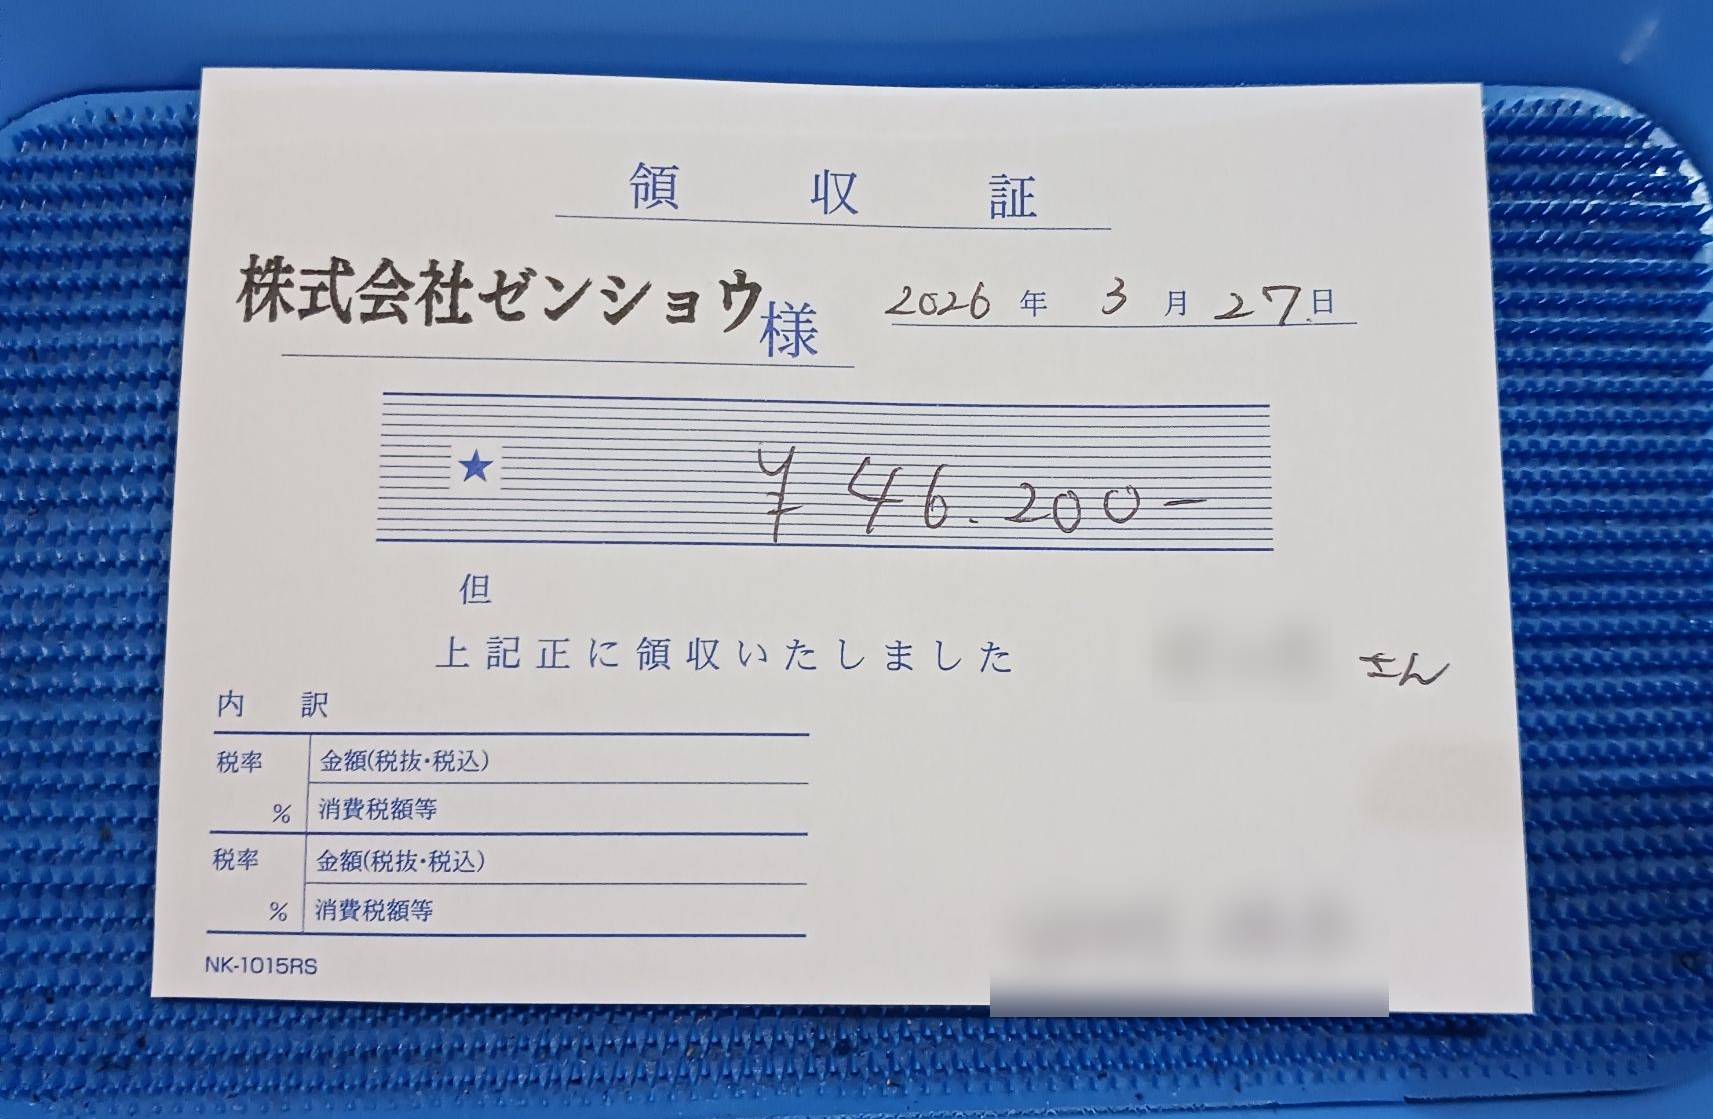 領収証
株式会社ゼンショウ様 2026年3月27日
★ ¥46.200-
但
上記正に領収いたしました
さん
内訳
税率 金額(税抜・税込)
% 消費税額等
税率 金額(税抜・税込)
% 消費税額等
NK-1015RS